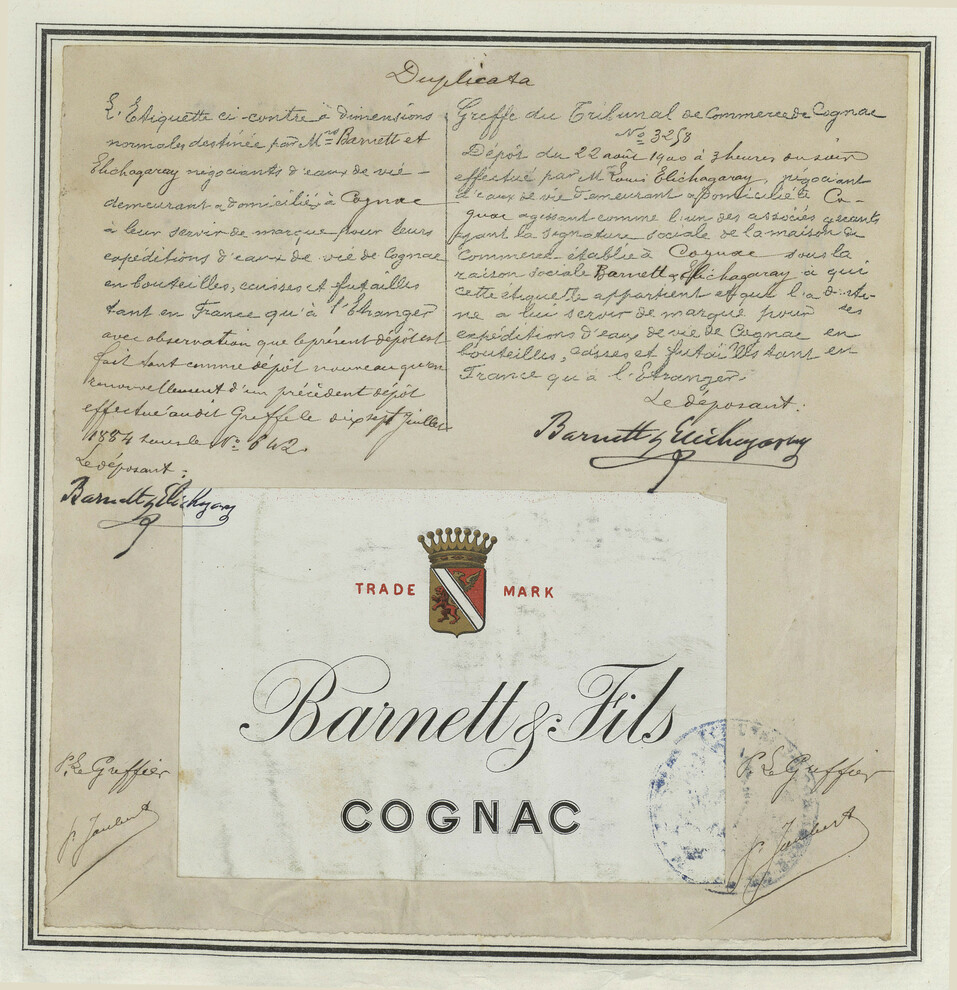 Duplicata
L'Etiquette ci-contre à dimensions
normales destinée par Mrs Barnett et
Elichagaray négociants d'eaux de vie -
demeurant & domiciliés à Cognac
à leur servir de marque pour leurs
expéditions d'eaux de vie de Cognac
en bouteilles, caisses et futailles
tant en France qu'à l'Etranger
avec observation que le présent dépôt est
fait tant comme dépôt nouveau qu'en
renouvellement d'un précédent dépôt
effectué audit Greffe le dix sept Juillet
1884 sous le No 642.
Le déposant :
Barnett & Elichagaray
Greffe du Tribunal de Commerce de Cognac
No 3253
Dépôt du 22 août 1900 à 3 heures du soir
effectué par M. Louis Elichagaray, négociant
d'eaux de vie demeurant & domicilié à Co-
gnac agissant comme l'un des associés gérants
ayant la signature sociale de la maison de
Commerce établie à Cognac sous la
raison sociale Barnett & Elichagaray à qui
cette étiquette appartient et qui l'a desti-
née à lui servir de marque pour ses
expéditions d'eaux de vie de Cognac en
bouteilles, caisses et futailles tant en
France qu'à l'Etranger.
Le déposant :
Barnett & Elichagaray
TRADE MARK
Barnett & Fils
COGNAC
P. Le Greffier
P. Le Greffier